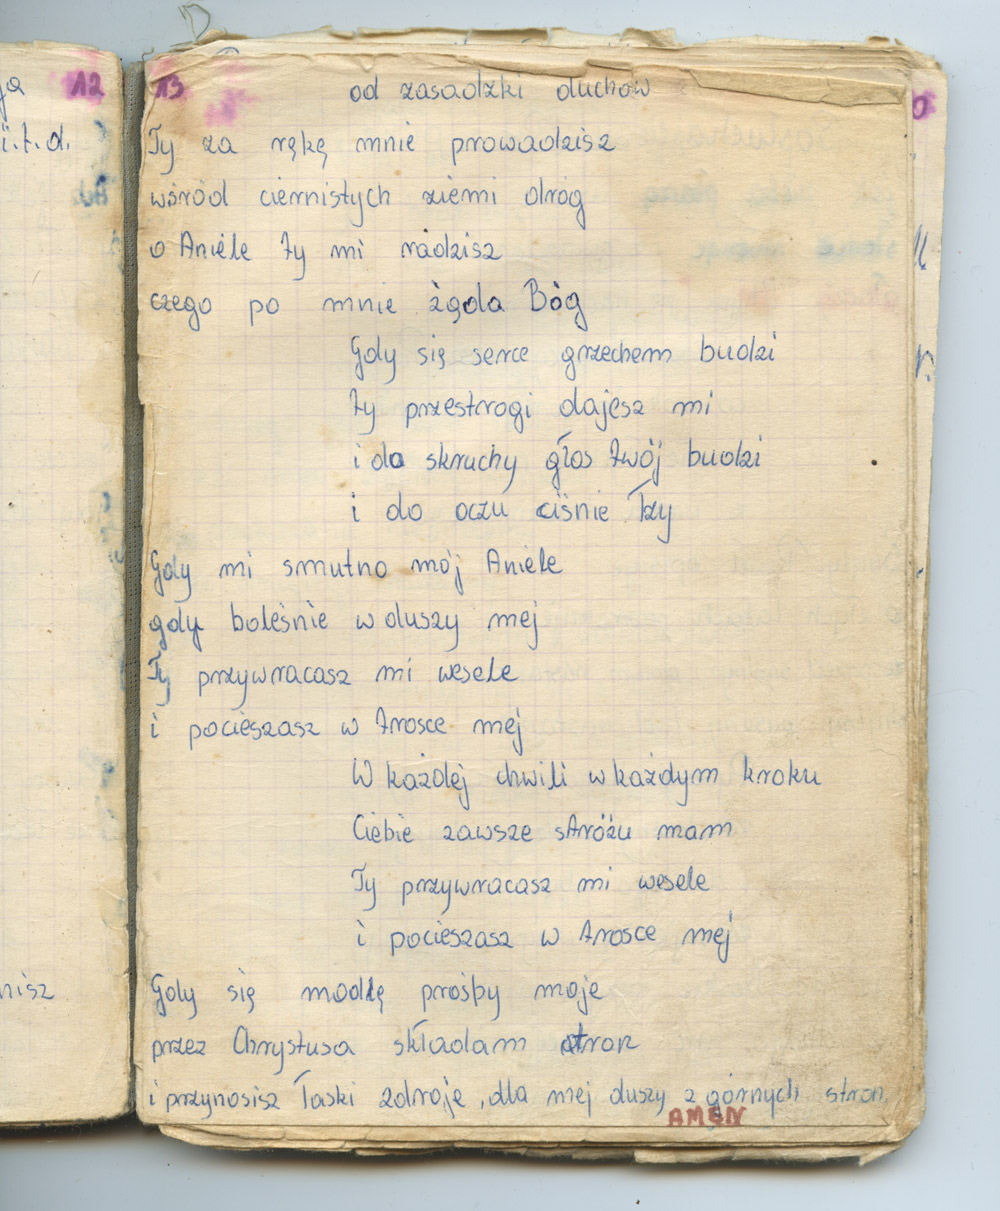 12
i.t.d.
nisz
13
od zasadzki duchów
Ty za rękę mnie prowadzisz
wśród ciernistych ziemi dróg
o Aniele Ty mi radzisz
czego po mnie żąda Bóg
Gdy się serce grzechem budzi
Ty przestrogi dajesz mi
i do skruchy głos Twój budzi
i do oczu ciśnie łzy
Gdy mi smutno mój Aniele
gdy boleśnie w duszy mej
Ty przywracasz mi wesele
i pocieszasz w trosce mej
W każdej chwili w każdym kroku
Ciebie zawsze stróżu mam
Ty przywracasz mi wesele
i pocieszasz w trosce mej
Gdy się modlę prośby moje
przez Chrystusa składam tron
i przynosisz łaski zdroje, dla mej duszy z górnych stron.
AMEN